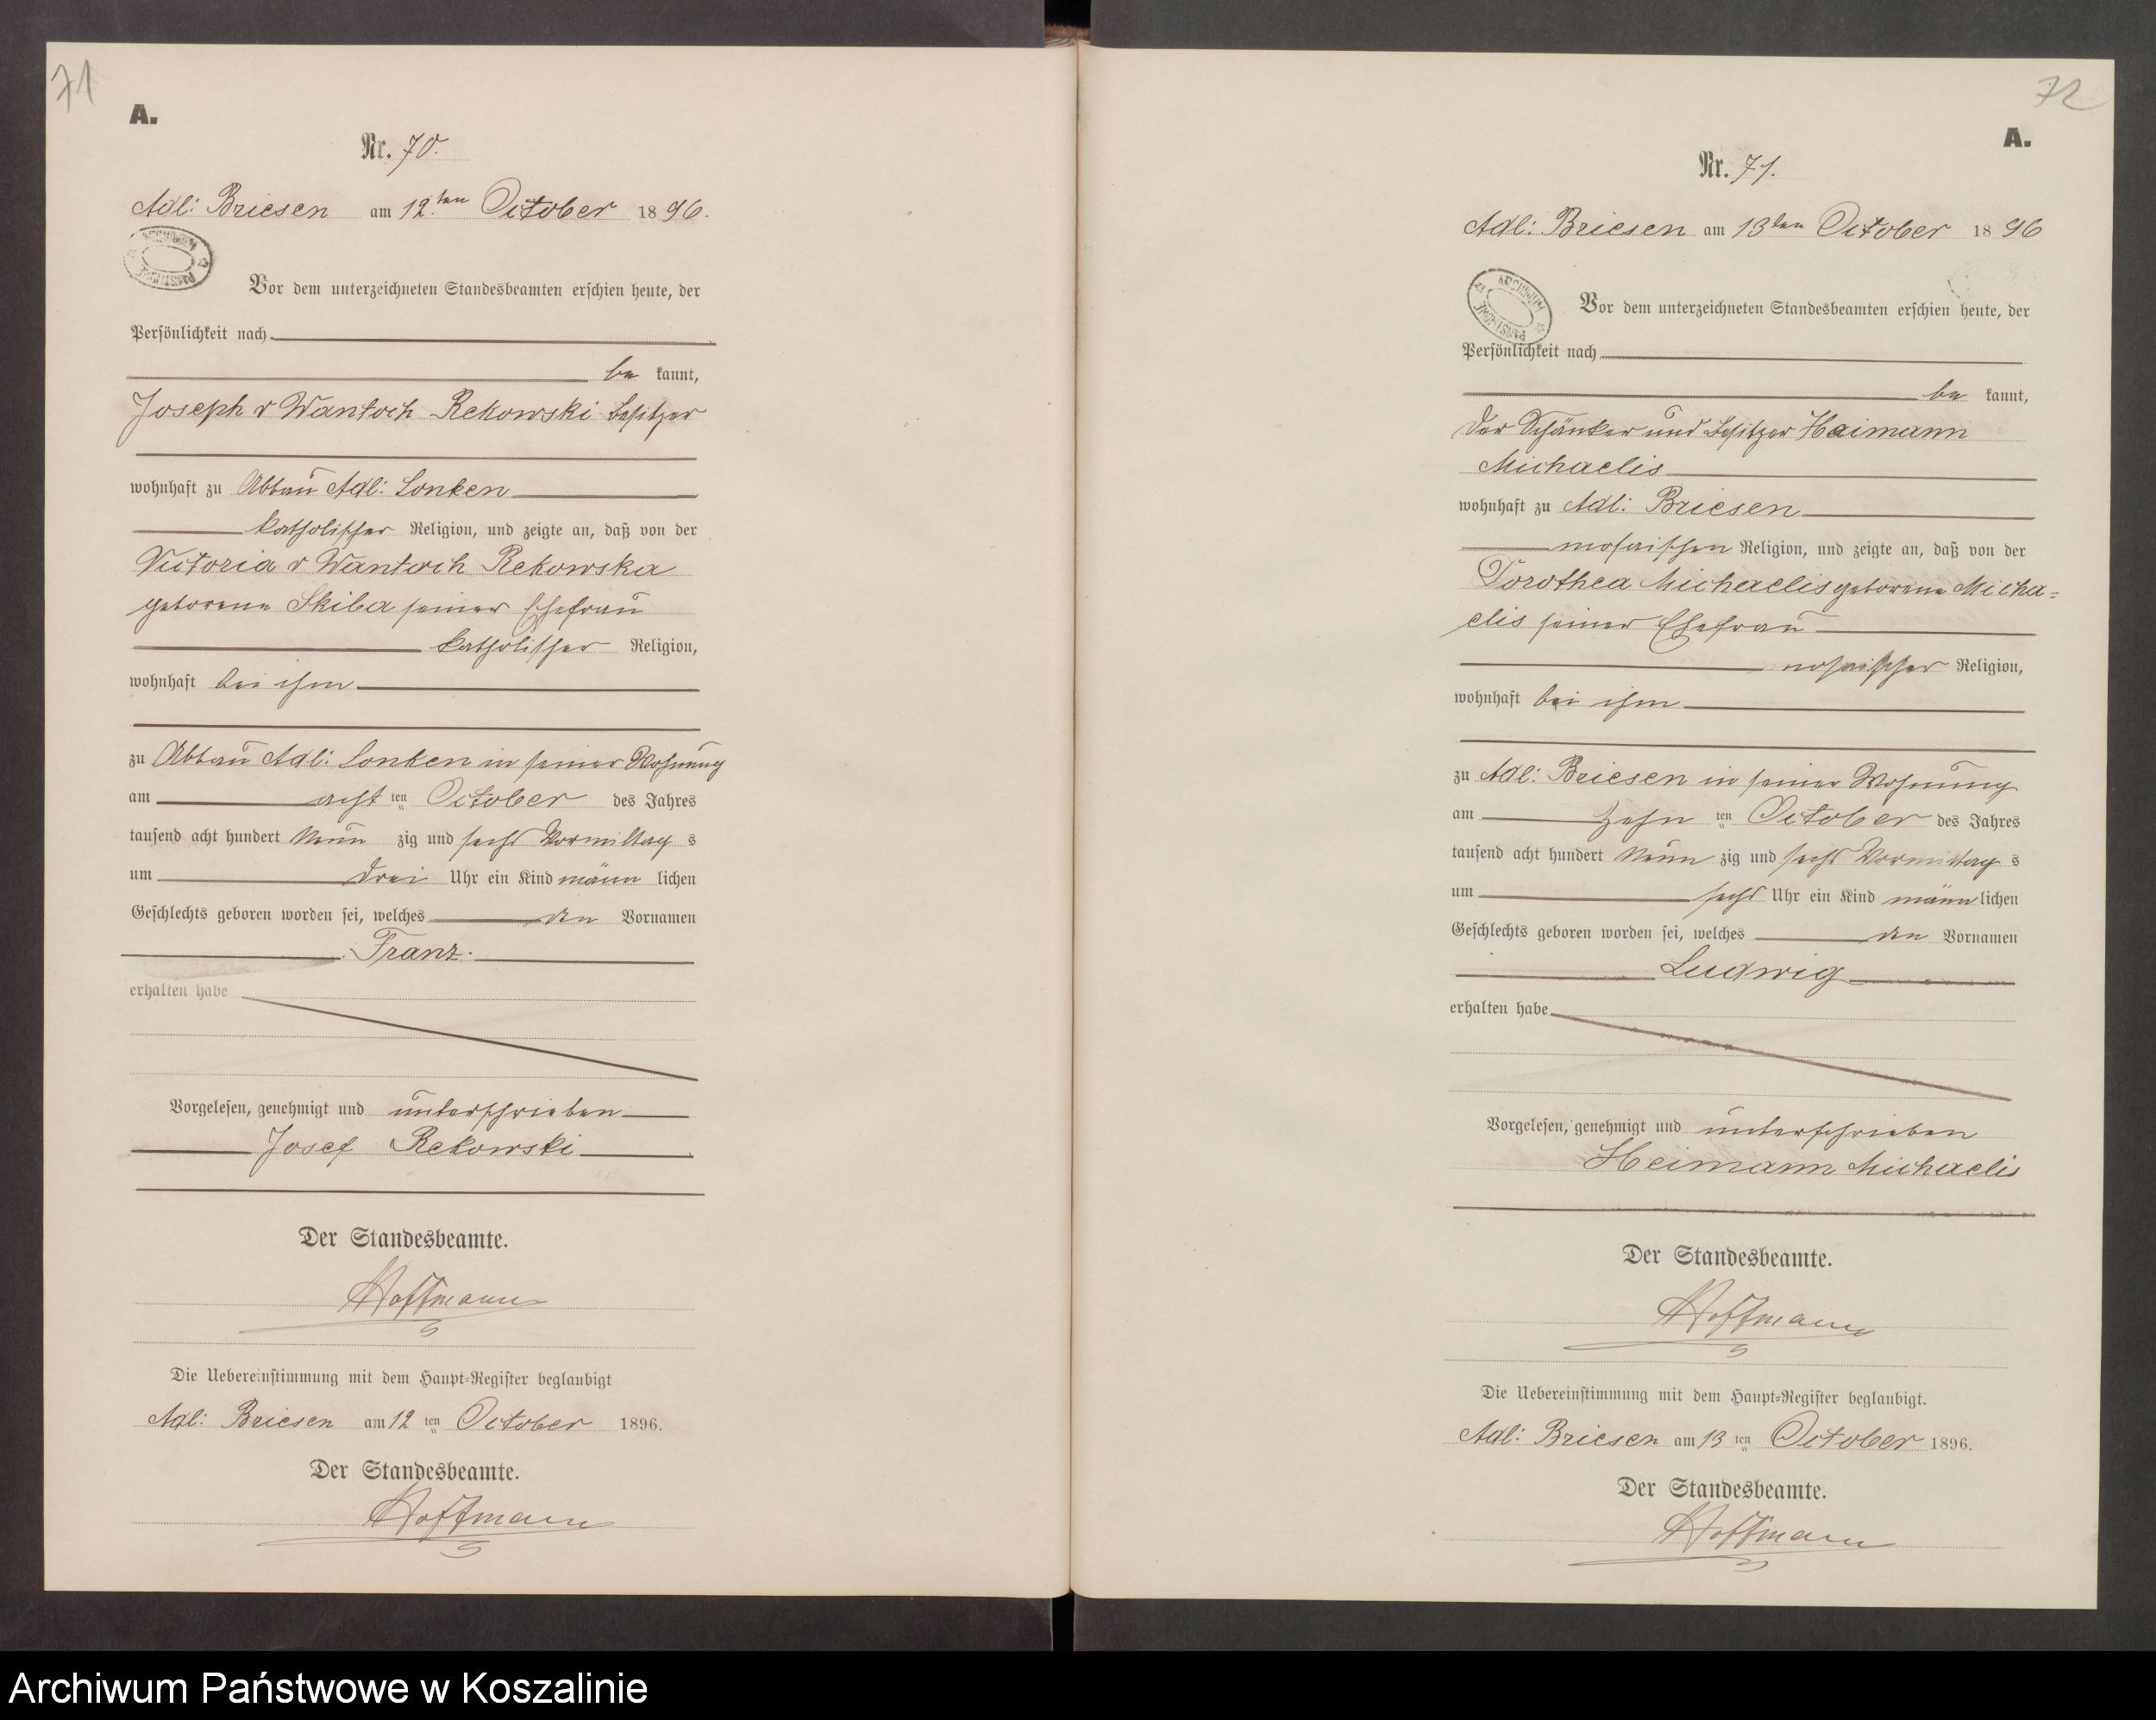 71
A.
Nr. 70.
Adl: Briesen am 12ten October 1896.
ARCHIWUM PAŃSTWOWE
Vor dem unterzeichneten Standesbeamten erschien heute, der
Persönlichkeit nach
be kannt,
Joseph v Wantoch Rekowski Besitzer
wohnhaft zu Abbau Adl: Lonken
katholischer Religion, und zeigte an, daß von der
Victoria v Wantoch Rekowska
geborene Skiba seiner Ehefrau
katholischer Religion,
wohnhaft bei ihm
zu Abbau Adl: Lonken in seiner Wohnung
am acht ten October des Jahres
tausend acht hundert Neun zig und sechs Vormittag s
um drei Uhr ein Kind männ lichen
Geschlechts geboren worden sei, welches den Vornamen
Franz.
erhalten habe
Vorgelesen, genehmigt und unterschrieben
Josef Rekowski
Der Standesbeamte.
Hoffmann
Die Uebereinstimmung mit dem Haupt-Register beglaubigt
Adl: Briesen am 12 ten October 1896.
Der Standesbeamte.
Hoffmann
72
A.
Nr. 71.
Adl: Briesen am 13ten October 1896
ARCHIWUM PAŃSTWOWE
Vor dem unterzeichneten Standesbeamten erschien heute, der
Persönlichkeit nach
be kannt,
der Schänker und Besitzer Haimann
Michaelis
wohnhaft zu Adl: Briesen
mosaischen Religion, und zeigte an, daß von der
Dorothea Michaelis geborene Micha=
elis seiner Ehefrau
mosaischer Religion,
wohnhaft bei ihm
zu Adl: Briesen in seiner Wohnung
am zehn ten October des Jahres
tausend acht hundert Neun zig und sechs Vormittag s
um sechs Uhr ein Kind männ lichen
Geschlechts geboren worden sei, welches den Vornamen
Ludwig
erhalten habe
Vorgelesen, genehmigt und unterschrieben
Heimann Michaelis
Der Standesbeamte.
Hoffmann
Die Uebereinstimmung mit dem Haupt-Register beglaubigt.
Adl: Briesen am 13 ten October 1896.
Der Standesbeamte.
Hoffmann
Archiwum Państwowe w Koszalinie